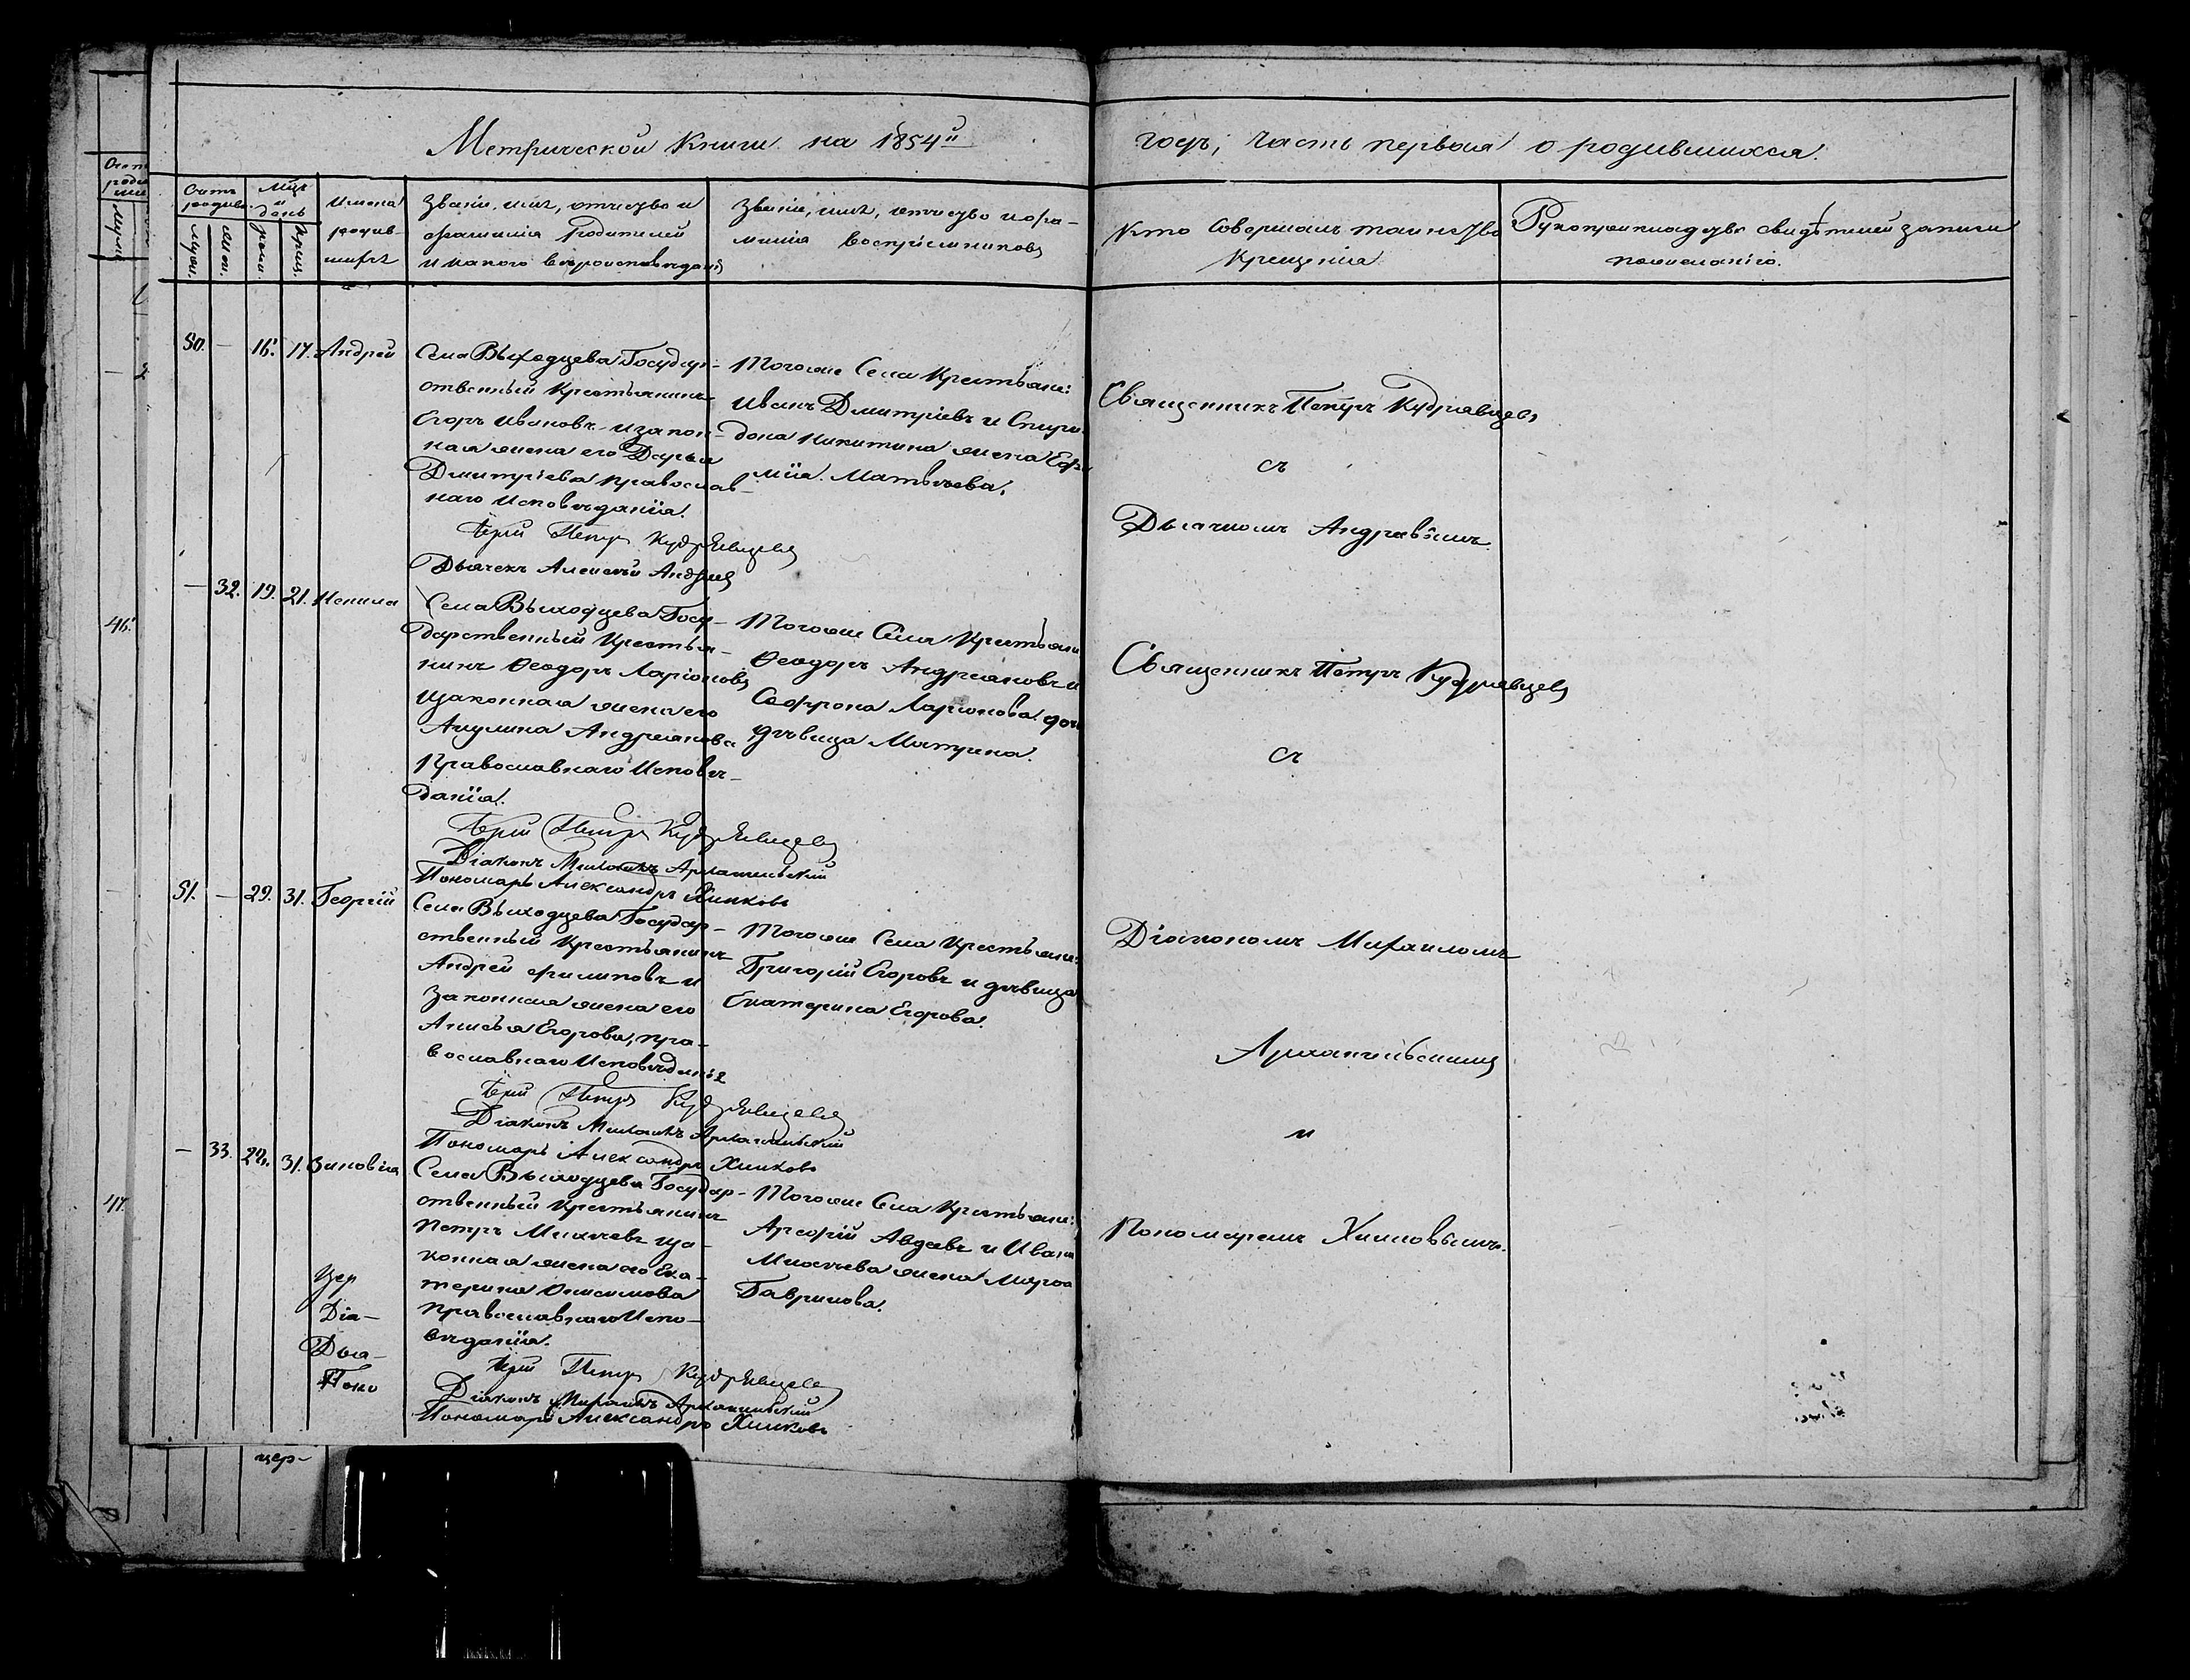 Метрической книги на 1854й
годъ, часть первая о родившихся.
Счетъ родив.
муж.
жен.
Мѣц и день
рожд.
крещ.
Имена родив-
шихся
Званіе, имя, отчество и
фамилія родителей
и какого вѣроисповѣданія
Званіе, имя, отчество и фа-
милія воспріемниковъ
Кто совершалъ таинство
крещенія
Рукоприкладство свидѣтелей записи
по желанію.
50. — 16. 17. Андрей
Села Выходцева Государ-
ственный Крестьянинъ
Егоръ Ивановъ и закон-
ная жена его Дарья
Дмитріева православ-
наго Исповѣданія.
Іерей Петръ Кудрявцевъ
Дьячекъ Алексѣй Андреев
Того же Села Крестьяни:
Иванъ Дмитріевъ и Спири-
дона Никитина жена Еф
мія Матвѣева.
Священникъ Петръ Кудрявцевъ
съ
Дьячкомъ Андреевымъ
— 32. 19. 21. Ненила
Села Выходцева Госу-
дарственный Крестья-
нинъ Ѳеодоръ Ларіоновъ
и законная жена его
Акулина Андреянова
Православнаго Исповѣ-
данія.
Іерей Петръ Кудрявцевъ
Діаконъ Михаилъ Архангельскій
Пономарь Александръ Химковъ
Того же Села Крестьяни
Ѳеодоръ Андреяновъ и
Софрона Ларионова доч
дѣвица Матрена.
Священникъ Петръ Кудрявцевъ
съ
51. — 29. 31. Георгій
Села Выходцева Государ-
ственный Крестьянинъ
Андрей Филиповъ и
законная жена его
Анисья Егорова, пра-
вославнаго Исповѣданія
Іерей Петръ Кудрявцевъ
Діаконъ Михаилъ Архангельскій
Пономарь Александръ Химковъ
Того же Села Крестьяни:
Григорій Егоровъ и дѣвица
Екатерина Егорова.
Діакономъ Михаиломъ
Архангельскимъ
и
— 33. 29. 31. Зиновія
Села Выходцева Государ-
ственный Крестьянинъ
Петръ Михеевъ и за-
конная жена его Ека-
терина Онисимова
православнаго Испо-
вѣданія.
Іерей Петръ Кудрявцевъ
Діаконъ Михаилъ Архангельскій
Пономарь Александръ Химковъ
Того же Села Крестьяни:
Арефій Авдеевъ и Ивана
Михеева жена Марѳа
Гаврилова.
Пономаремъ Химковымъ.
Діа-
Дьа-
Поно
46.
47.
цер-